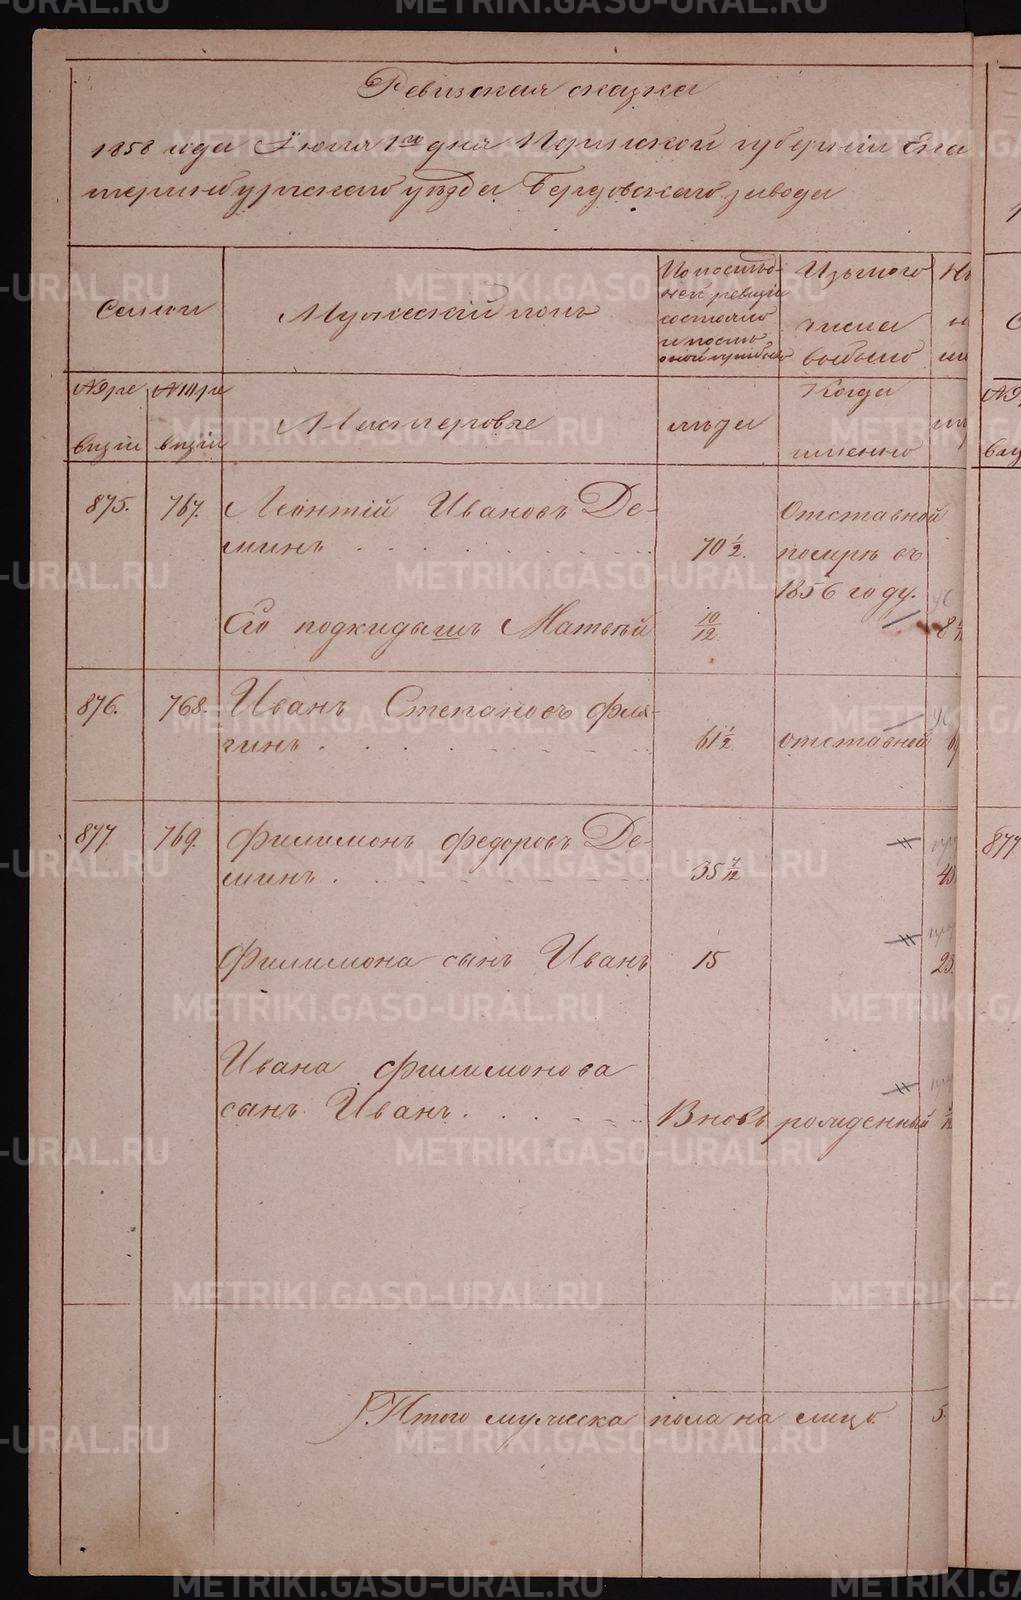 Ревизская сказка
1858 года Iюля 1го дня Пермской губернiи Ека
теринбургскаго уѣзда Бердовскаго завода
Семьи
Мужескiй полъ
По послѣд-
ней ревизiи
состояло
и послѣ
оной прибыло
Изъ того
числа
выбыло
Мастеровые
лѣта
Когда
именно
875. 767. Леонтiй Ивановъ Де-
минъ 70 1/2. Отставной
померъ въ
1856 году.
Его подкидышъ Матвѣй 10/12 8
876. 768. Иванъ Степановъ Фия-
гинъ 61 1/2 отставной
877. 769. Филимонъ Федоровъ Де-
минъ 35 7/12
Филимона сынъ Иванъ 15 23.
Ивана Филимонова
сынъ Иванъ Вновь рожденный
Итого мужеска пола на лицо 5.
877
METRIKI.GASO-URAL.RU